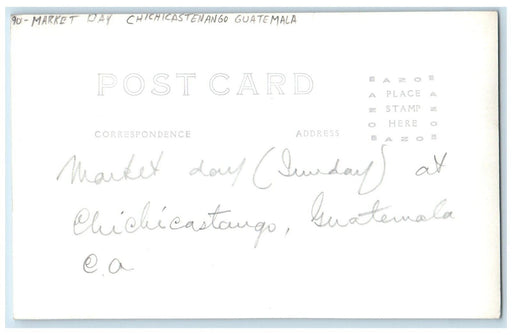 90-MARKET DAY CHICHICASTENANGO GUATEMALA
POST CARD
AZOE
PLACE
STAMP
HERE
AZO
CORRESPONDENCE
ADDRESS
Market day (Sunday) at
Chichicastango, Guatemala
C.A